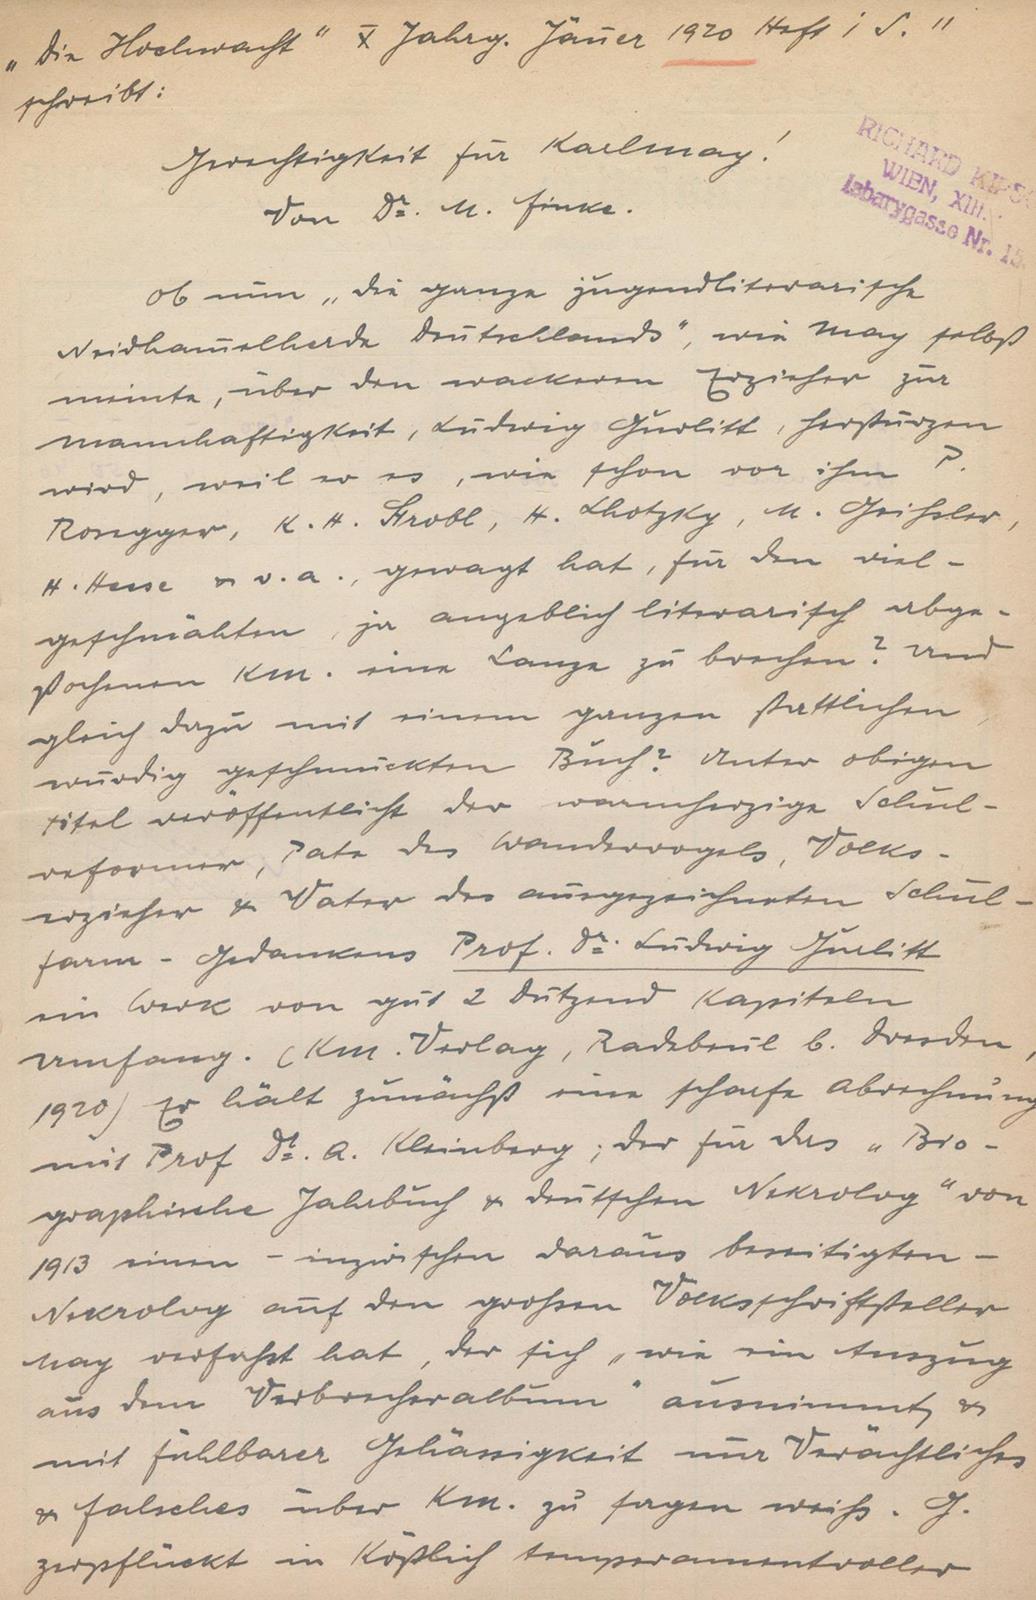 „Die Hochwacht“ X Jahrg. Jäner 1920 Heft 1 S. 11
schreibt:
RICHARD
WIEN, XIII.
Labarygasse Nr. 15
Gerechtigkeit für Karlmay!
Von Dr. M. Finke.
Ob nun „die ganze jugendliterarische
Neidhammelherde Deutschlands“, wie May selbst
meinte, über den wackeren Erzieher zur
Mannhaftigkeit, Ludwig Gurlitt, herstürzen
wird, weil er es, wie schon vor ihm P.
Rosegger, K. H. Strobl, H. Lhotzky, M. Geißler,
H. Hesse & v. a., gewagt hat, für den viel-
geschmähten, ja angeblich literarisch abge-
stochenen Km. eine Lanze zu brechen? Und
gleich dazu mit einem ganzen stattlichen,
würdig geschmückten Buch? Unter obigen
Titel veröffentlicht der warmherzige Schul-
reformer, Pate des Wandervogels, Volks-
erzieher & Vater des ausgezeichneten Schul-
farm-Gedankens Prof. Dr. Ludwig Gurlitt
ein Werk von gut 2 Dutzend Kapiteln
Umfang. (Km. Verlag, Radebeul b. Dresden,
1920) Er hält zunächst eine scharfe Abrechnung
mit Prof Dr. A. Kleinberg; der für das „Bio-
graphische Jahrbuch & deutschen Nekrolog“ von
1913 einen – inzwischen daraus beseitigten –
Nekrolog auf den großen Volksschriftsteller
May verfaßt hat, der sich „wie ein Auszug
aus dem Verbrecheralbum“ ausnimmt, &
mit fühlbarer Gehässigkeit nur Verächtliches
& falsches über Km. zu sagen weiß. G.
zerpflückt in köstlich temperamentvoller